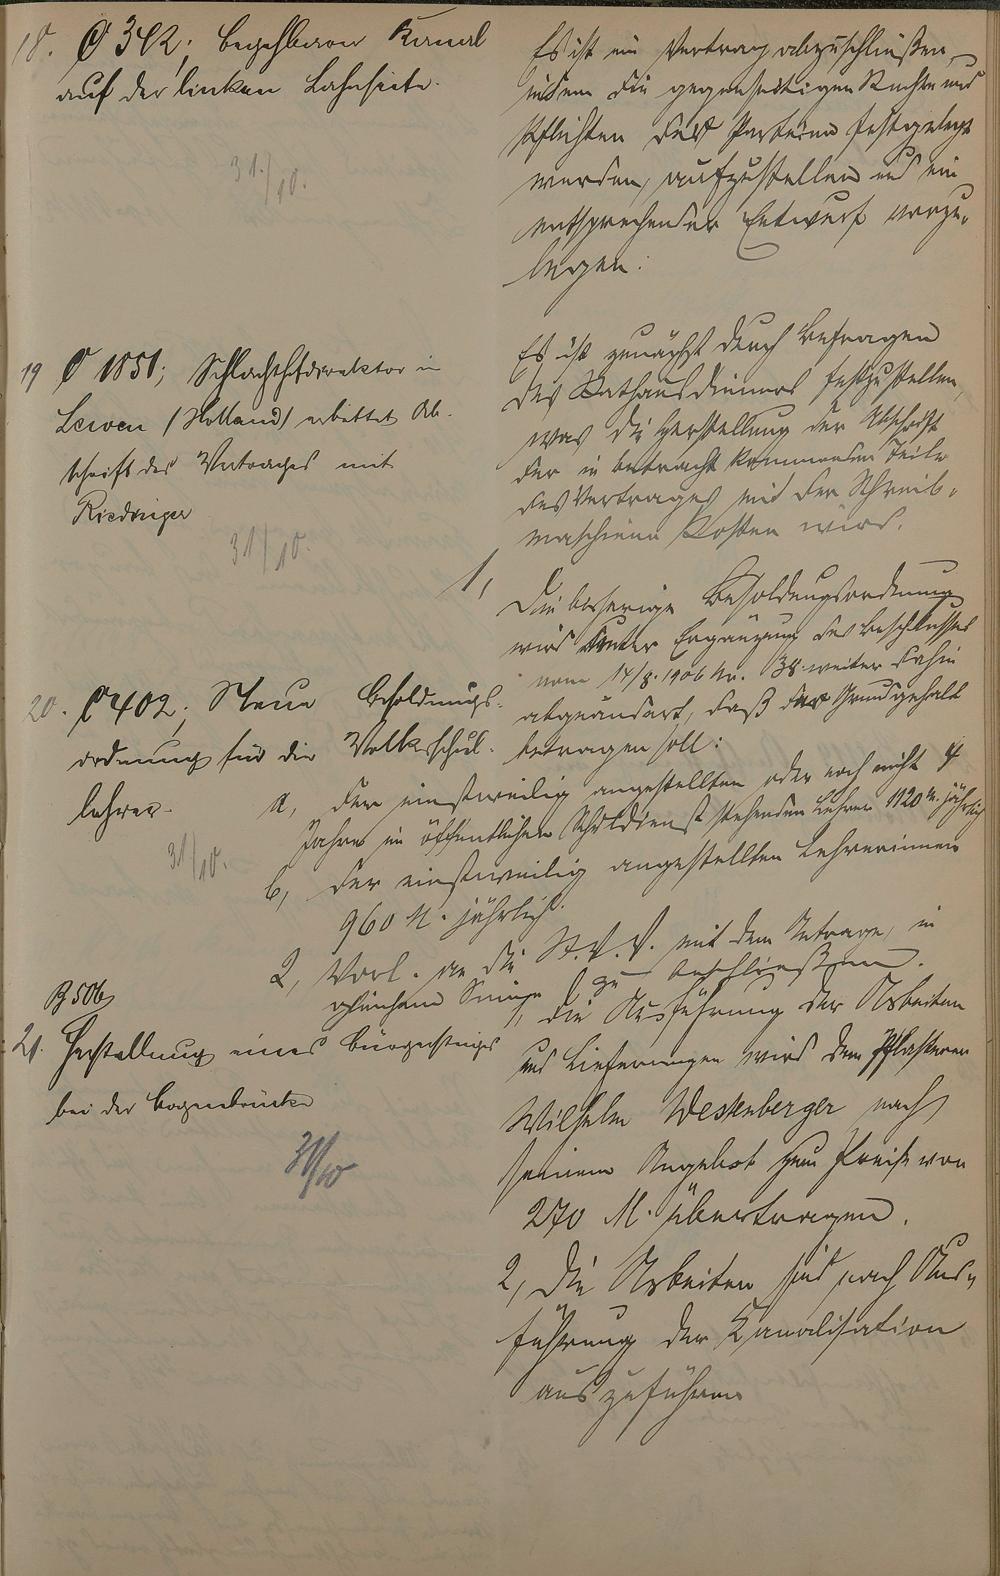 18. C 342; begehbarer Kanal
auf der linken Lahnseite.
31./10.
Es ist ein Vertrag abzuschließen,
in dem die gegenseitigen Rechte und
Pflichten der Parteien festgelegt
werden, aufzustellen und ein
entsprechender Entwurf vorzu-
legen.
19 C 1851; Schlachthofdirektor in
(Holland) erbittet Ab-
schrift des Vertrages mit
Riedinger
31/10.
Es ist zunächst durch Befragen
des Rathausdieners festzustellen,
was die Herstellung der Abschrift
der in Betracht kommenden Teile
des Vertrages mit der Schreib-
maschine kosten wird.
20. C 402; Neue Besoldungs-
ordnung für die Volksschul-
lehrer.
31/10.
1, Die bisherige Besoldungsordnung
wird unter Ergänzung des Beschlusses
vom 14/8. 1906 Nr. 38 weiter dahin
abgeändert, daß das Grundgehalt
betragen soll:
a, der einstweilig angestellten oder noch nicht 4
Jahre im öffentlichen Schuldienst stehenden Lehrer 1120 M. jährlich
b, der einstweilig angestellten Lehrerinnen
960 M. jährlich.
2, Vorl. an die St.V.V. mit dem Antrage, in
gleichem Sinne zu beschließen.
B 506
21. Herstellung eines Bürgersteiges
bei der Bogenbrücke
31/10
1, Die Ausführung der Arbeiten
und Lieferungen wird dem Pflasterer
Wilhelm Westenberger nach
seinem Angebot zum Preise von
270 M. übertragen.
2, Die Arbeiten sind nach Aus-
führung der Kanalisation
auszuführen